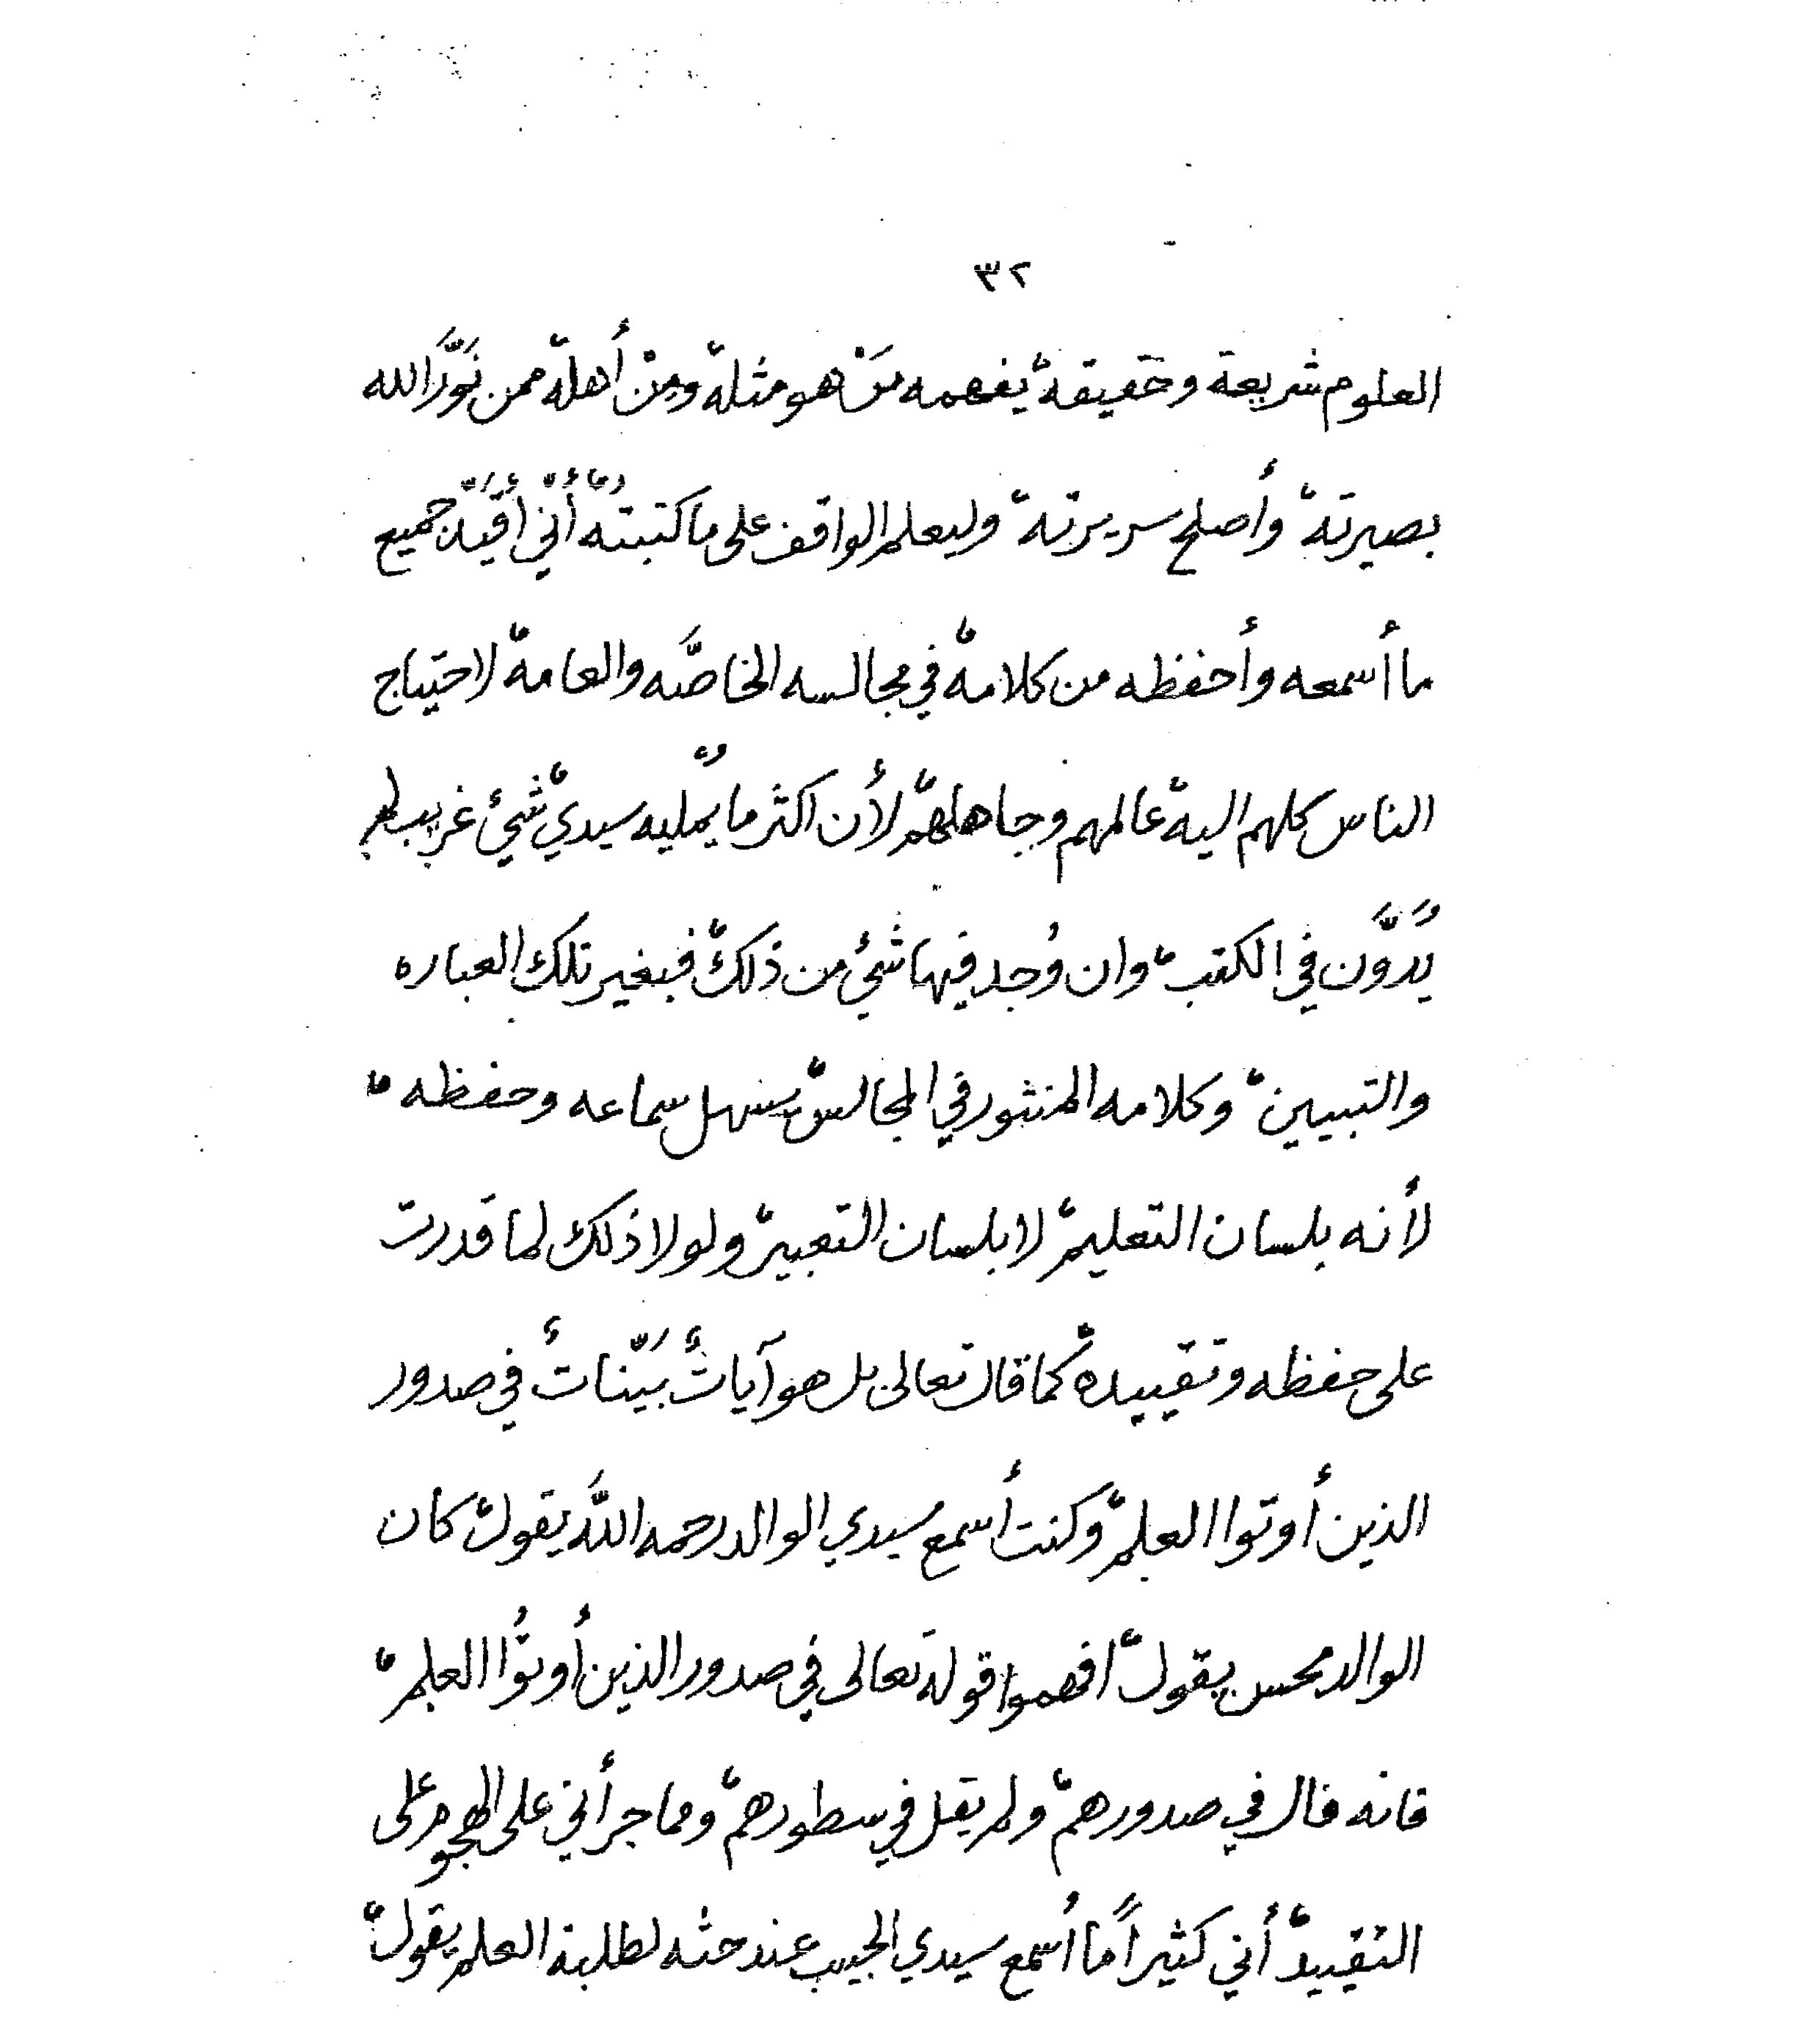 ٣٢
العلوم شريعة وحقيقة، يفهمه مَنْ هو مثله، ومِنْ أهله، ممن نَوَّرَ الله
بصيرته، وأصلح سريرته، وليعلم الواقف على ما كتبتُهُ، أنّي أُقَيِّد جميع
ما أسمعه وأحفظه من كلامه، في مجالسه الخاصَّه والعامة، لاحتياج
الناس كلهم اليه، عالمهم وجاهلهم، لأن اكثر ما يُمليه سيدي، شيئ غريب لم
يُدَوَّن في الكتب، وان وُجد فيها شيئ من ذلك، فبغير تلك العباره
والتبيين، وكلامه المنثور في المجالس، يسهل سماعه وحفظه،
لأنه بلسان التعليم، لا بلسان التعبير، ولولا ذلك لما قدرت
على حفظه وتقييده، كما قال تعالى بل هو آياتٌ بَيّناتٌ في صدور
الذين أوتوا العلم، وكنت أسمع سيدي الوالد رحمه اللَّه يقول، كان
الوالد محسن يقول، افهموا قوله تعالى في صدور الذين أُوتوُا العلم،
فانه قال في صدورهم، ولم يقل في سطورهم، ومما جرأني على الهجوم على
التقييد، أني كثيراً ما أسمع سيدي الحبيب عند حثه لطلبة العلم يقول،